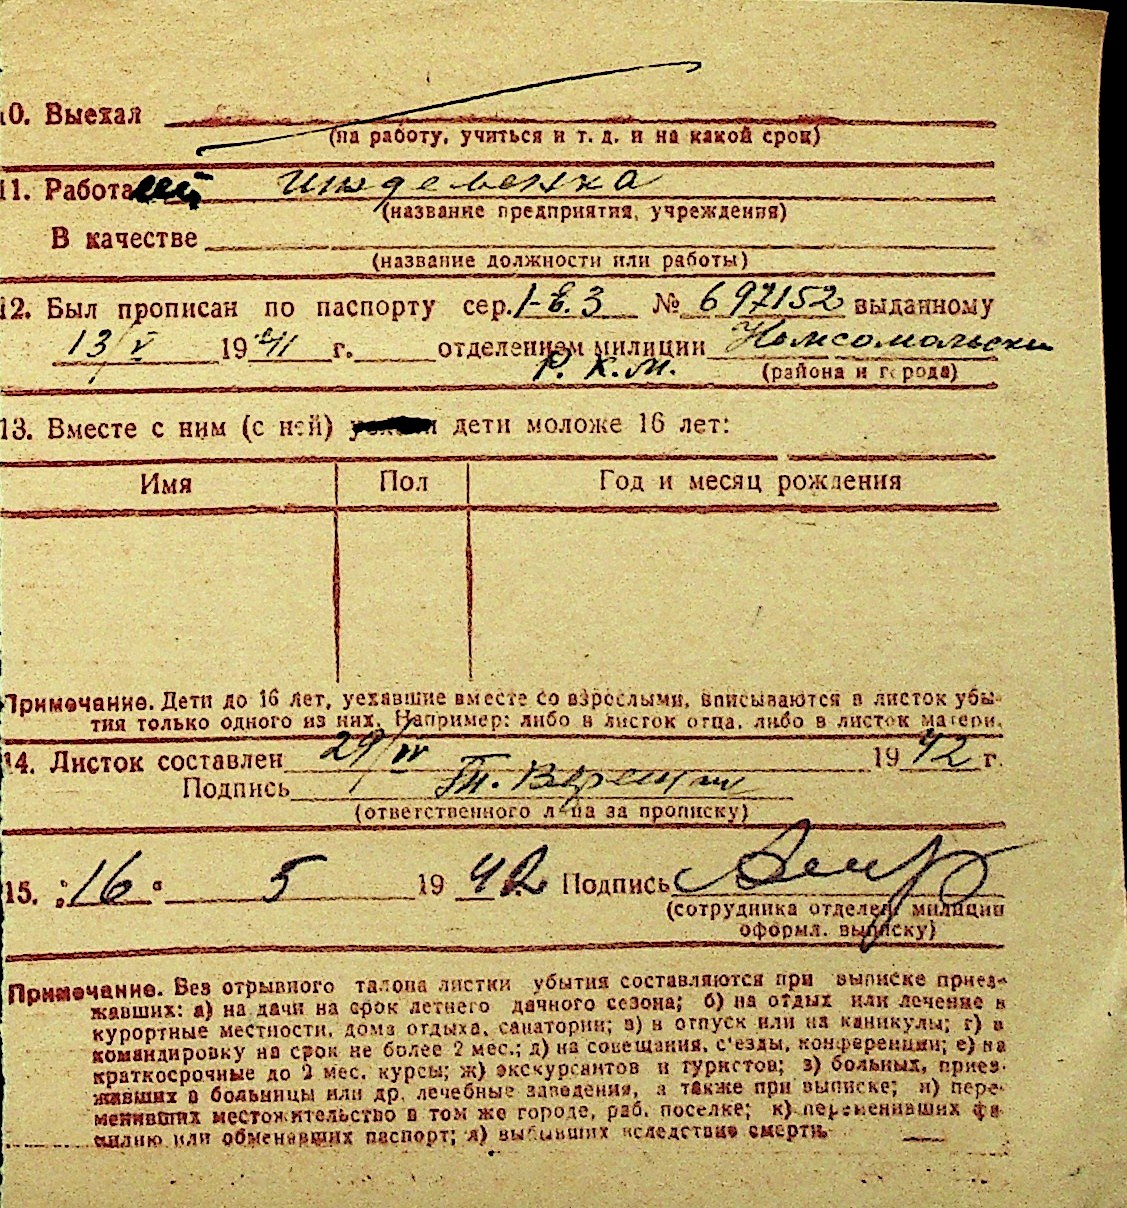 10. Выехал
(на работу, учиться и т. д. и на какой срок)
11. Работа иждевенка
(название предприятия, учреждения)
В качестве
(название должности или работы)
12. Был прописан по паспорту сер. I-Е.З № 697152 выданному
13/V 1941 г. отделением милиции Комсомольски
Р. К. М. (района и города)
13. Вместе с ним (с ней) дети моложе 16 лет:
Имя Пол Год и месяц рождения
Примечание. Дети до 16 лет, уехавшие вместе со взрослыми, вписываются в листок убы-
тия только одного из них. Например: либо в листок отца, либо в листок матери.
14. Листок составлен 29/IV 1942 г.
Подпись
(ответственного лица за прописку)
15. „16“ 5 1942 Подпись
(сотрудника отделен. милиции
оформл. выписку)
Примечание. Без отрывного талона листки убытия составляются при выписке приез-
жавших: а) на дачи на срок летнего дачного сезона; б) на отдых или лечение в
курортные местности, дома отдыха, санатории; в) в отпуск или на каникулы; г) в
командировку на срок не более 2 мес.; д) на совещания, с'езды, конференции; е) на
краткосрочные до 2 мес. курсы; ж) экскурсантов и туристов; з) больных, приез-
жавших в больницы или др. лечебные заведения, а также при выписке; и) пере-
менивших местожительство в том же городе, раб. поселке; к) переменивших фа-
милию или обменявших паспорт; л) выбывших вследствие смерти.